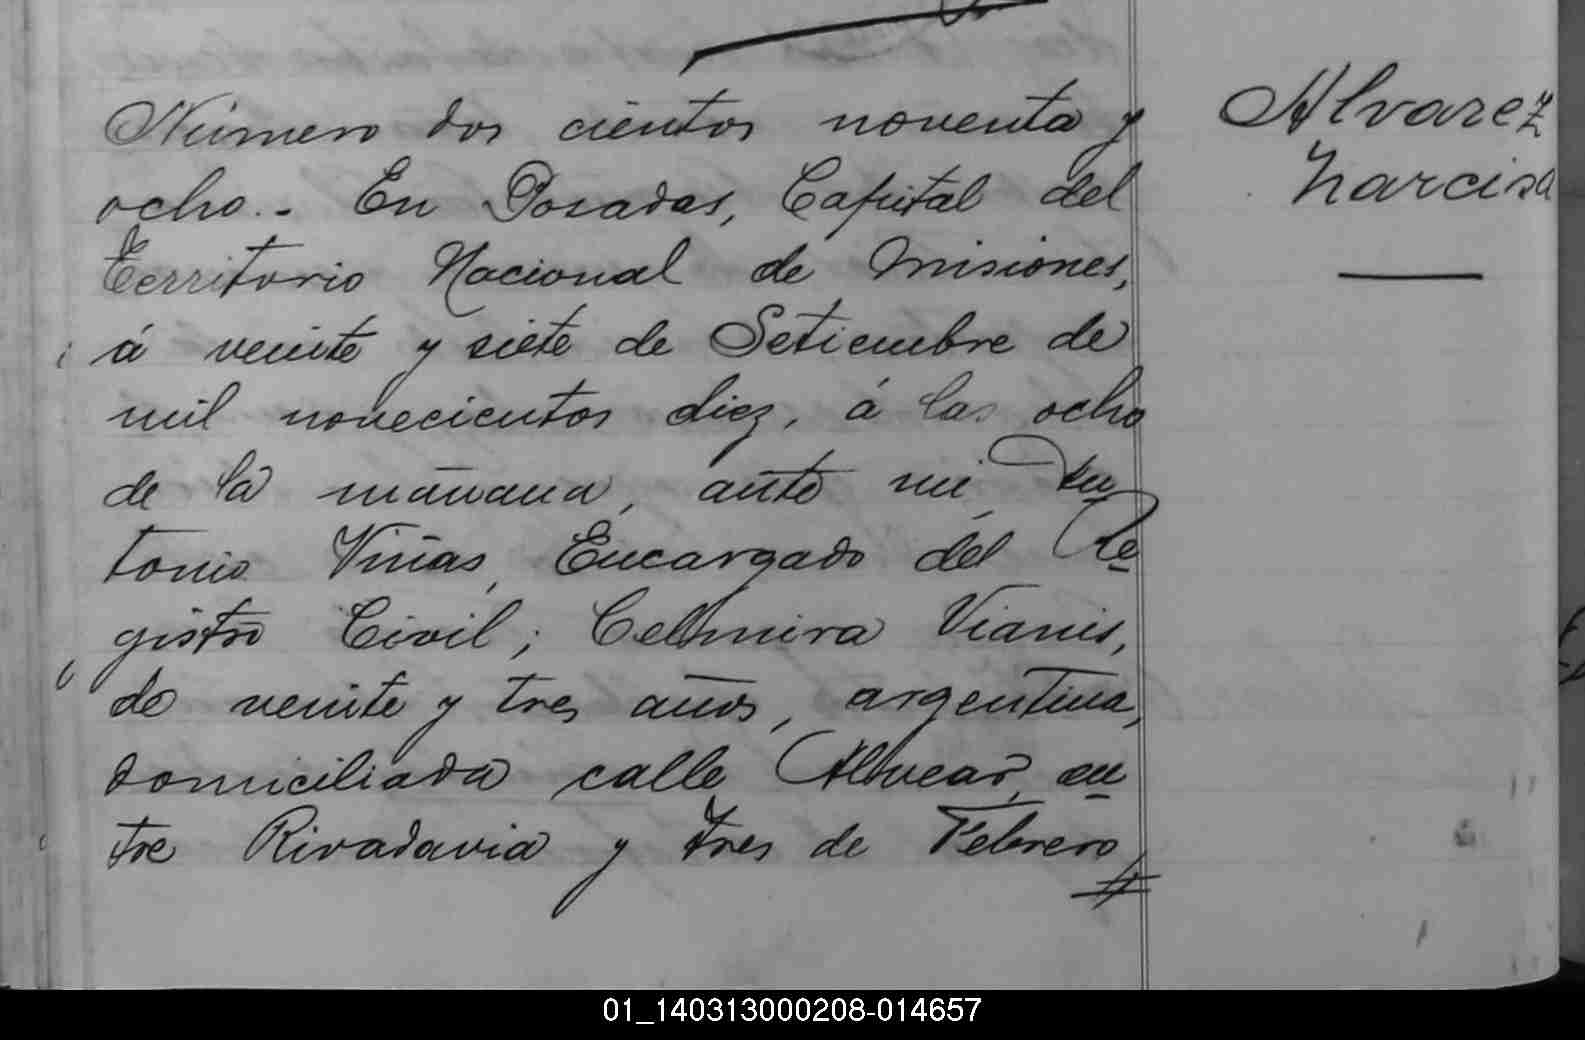 Número dos cientos noventa y
ocho.- En Posadas, Capital del
Territorio Nacional de Misiones,
á veinte y siete de Setiembre de
mil novecientos diez, á las ocho
de la mañana, ante mi, An
tonio Viñas, Encargado del Re
gistro Civil; Celmira Vianis,
de veinte y tres años, argentina,
domiciliada calle Alvear, en
tre Rivadavia y Tres de Febrero,
Alvarez
Narcisa
01_140313000208-014657